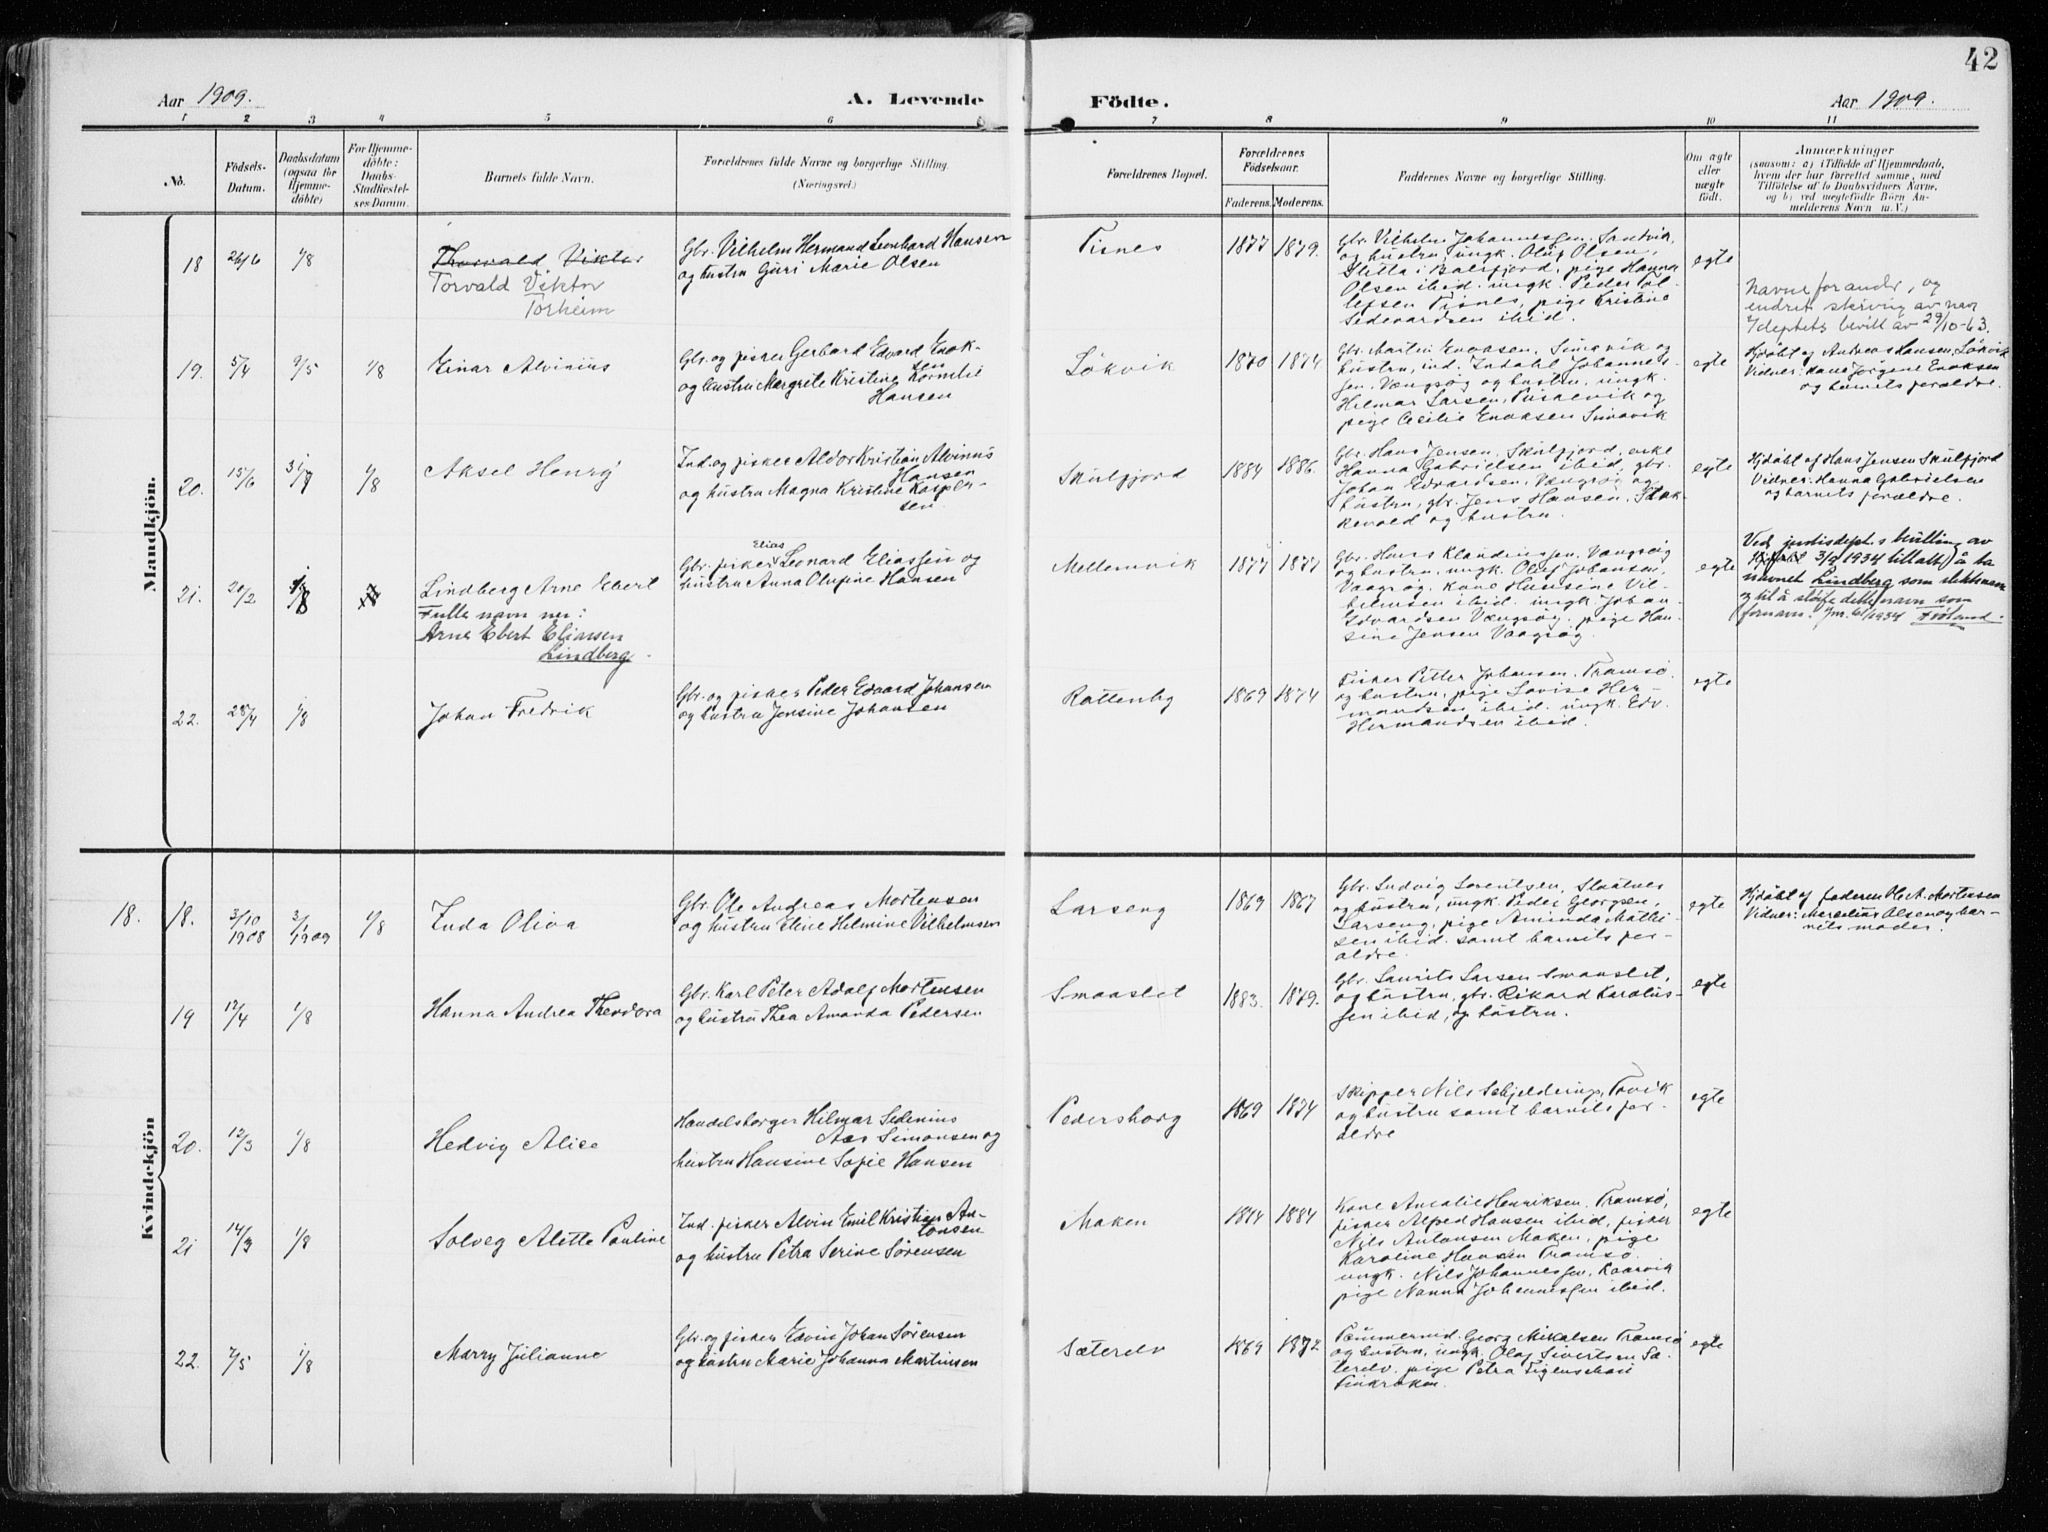 42
Aar 1909. A. Levende Födte. Aar 1909.
1 2 3 4 5 6 7 8 9 10 11
No.
Födsels-
Datum.
Daabsdatum
(ogsaa for
Hjemme-
döbte)
For Hjemme-
döbte:
Daabs-
Stadfæstel-
ses-Datum.
Barnets fulde Navn.
Forældrenes fulde Navne og borgerlige Stilling.
(Næringsvei.)
Forældrenes Bopæl.
Forældrenes
Födselsaar.
Faderens. Moderens.
Faddernes Navne og borgerlige Stilling.
Om ægte
eller
uægte
født.
Anmærkninger
(saasom: a) i Tilfælde af Hjemmedaab,
hvem der har forrettet samme, med
Tilföielse af to Daabsvidners Navne,
og b) ved uægtefödte Börn An-
melderens Navn m.V.)
Mandkjön.
18 26/6 1/8
Thorvald Viktor
Torvald Viktor
Torheim
Gbr. Vilhelm Hermand Leonhard Hansen
og hustru Guri Marie Olsen
Tisnes
1877 1879.
Gbr. Vilhelm Johannessen, Sandvik,
og hustru, ungk. Oluf Olsen,
Sletta i Balsfjord, pige Hanna
Olsen ibid. ungk. Peder Tol-
lefsen Tisnes, pige Kristine
Sedevardsen ibid.
egte
Navneforandr, og
endret skriving av navn
J/deptets bevill av 29/10-63.
19. 5/4 9/5 1/8
Einar Alvinius
Gbr. og fisker Gerhard Edvard Enok-
sen
og hustru Margrete Kristine Kornelie
Hansen
Løkvik
1870 1874
Gbr. Martin Enoksen, Simavik og
hustru, ind. Indahl Johannes-
sen, Vængsøg og hustru, ungk.
Hilmar Larsen, Piskelvik og
pige Cecilie Enoksen Simavik
egte
Hjdøbt af Andreas Hansen, Løkvik
Vidner: kone Jørgine Enoksen
og barnets forældre.
20. 15/6 31/7 1/8
Aksel Henry
Ind. og fisker Aldor Kristian Alvinus
Hansen
og hustru Magna Kristine Kasper-
sen
Skulfjord
1884 1886.
Gbr. Hans Jensen, Skulfjord, enke
Hanna Gabrielsen ibid, gbr.
Johan Edvardsen, Vængsøg og
hustru, gbr. Jens Hansen, Stak-
kevold og hustru.
egte
Hjdøbt af Hans Jensen Skulfjord
Vidner: Hanna Gabrielsen
og barnets forældre.
21. 20/2 1/8
Lindberg Arne Ebert
Fulle navn nu:
Arne Ebert Eliassen
Lindberg.
Elias
Gbr. fisker Leonard Eliassen og
hustru Anna Olufine Hansen
Mellemvik
1877 1877
Gbr. Hans Klaudiussen, Vængsøg
og hustru, ungk. Oluf Johansen,
Vaagsøg, kone Hansine Vil-
helmsen ibid. ungk. Johan
Edvardsen Vængsøg, pige Han-
sine Jensen Vaagsøg.
egte
Ved justisdept.s bevilling av
3/5 1934 tillatt å ta
navnet Lindberg som slektsnavn
og til å sløife dette navn som
fornavn.
22. 28/4 1/8
Johan Fredrik
Gbr. og fisker Peder Edvard Johansen
og hustru Jensine Johansen
Kattenhg
1869 1874
Fisker Petter Johansen. Tromsø.
og hustru, pige Lovise Her-
mandsen ibid. ungk. Edv.
Hermandsen ibid.
egte
Kvindekjön
18. 18. 3/10 1908 3/1 1909 1/8
Inda Oliva
Gbr. Ole Andreas Mortensen
og hustru Eline Helmine Vilhelmsen
Larseng
1869 1867
Gbr. Ludvig Lorentsen, Slaatnes
og hustru, ungk. Peder Georgsen,
Larseng, pige Aminda Mathi-
sen ibid. samt barnets for-
ældre.
egte
Hjdøbt af faderen Ole A. Mortensen
Vidner: Marelius Olsen og bar-
nets moder.
19 12/4 1/8
Hanna Andrea Theodora
Gbr. Karl Peter Adolf Mortensen
og hustru Thea Amanda Pedersen
Smaaslet
1883. 1879.
Gbr. Laurits Larsen Smaaslet,
og hustru, gbr. Rikard Karolus-
sen ibid, og hustru.
egte
20. 12/3 1/8
Hedvig Alice
Handelsborger Hilmar Sedenius
Aas Simonsen og
hustru Hansine Sofie Hansen
Pedersborg
1869 1874
Skipper Nils Schjelderup, Torvik
og hustru samt barnets for-
ældre
egte
21 14/3 1/8
Solveg Alette Pauline
Ind. fisker Alvin Emil Kristian An-
tonsen
og hustru Petra Serine Sørensen
Maken
1874 1884
Kone Ancalie Henriksen. Tromsø,
fisker Alfred Hansen ibid, fisker
Nils Antonsen Maken, pige
Karoline Hansen Tromsø.
ungk. Nils Johannessen, Kaarvik
pige Nanna Johannessen ibid.
egte
22. 7/5 1/8
Marry Julianne
Gbr. og fisker Edvin Johan Sørensen
og hustru Marie Johanna Martinsen
Sæterelv
1869 1872
Tømmermd. Georg Mikalsen Tromsø
og hustru, ungk. Olaf Sivertsen Sæ-
terelv, pige Petra
Finkroken.
egte